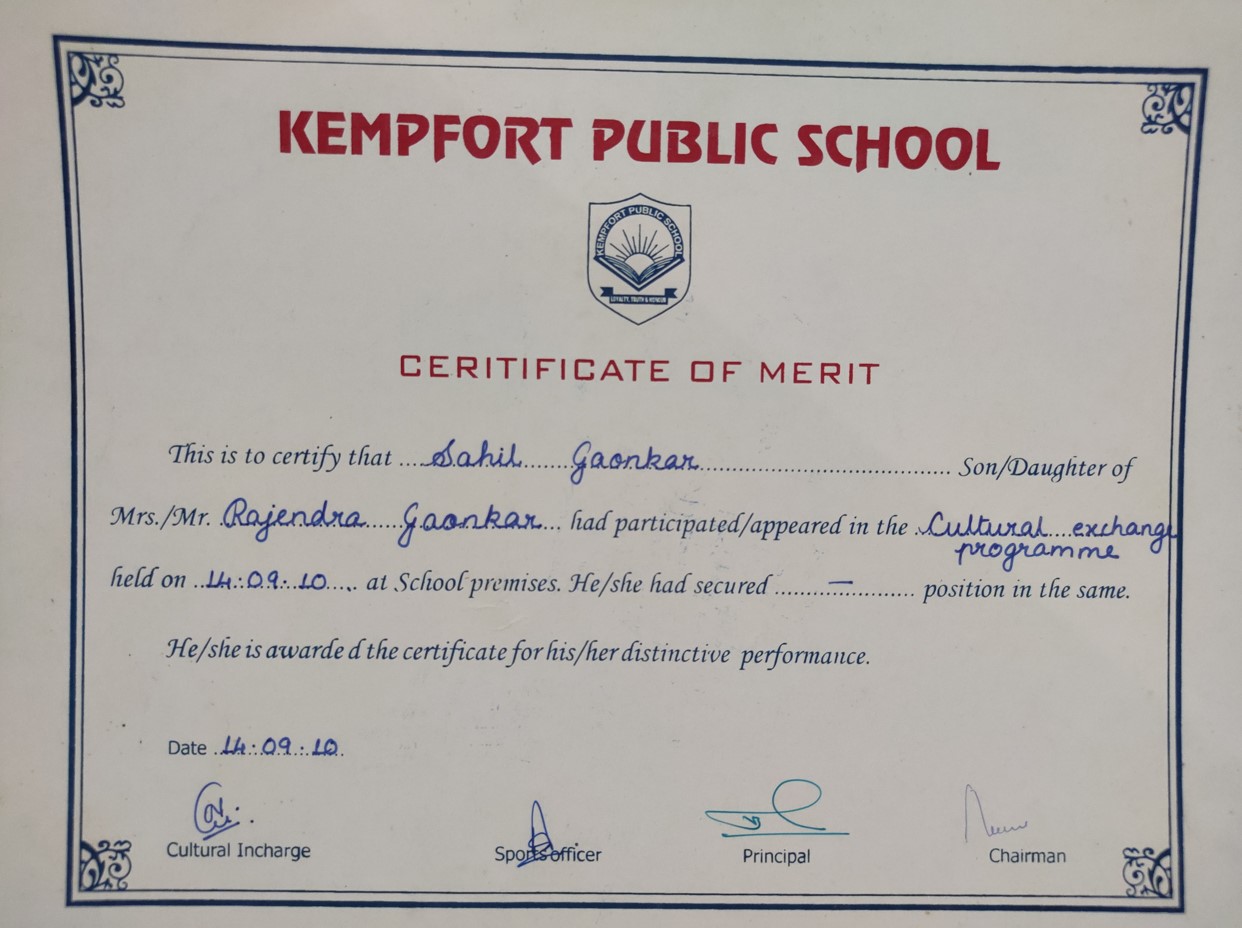 KEMPFORT PUBLIC SCHOOL
KEMPFORT PUBLIC SCHOOL
LOYALTY, TRUTH &
CERITIFICATE OF MERIT
This is to certify that Sahil Gaonkar Son/Daughter of
Mrs./Mr. Rajendra Gaonkar had participated/appeared in the Cultural exchange
programme
held on 14.09.10 at School premises. He/she had secured — position in the same.
He/she is awarded the certificate for his/her distinctive performance.
Date 14.09.10
Cultural Incharge Sports officer Principal Chairman